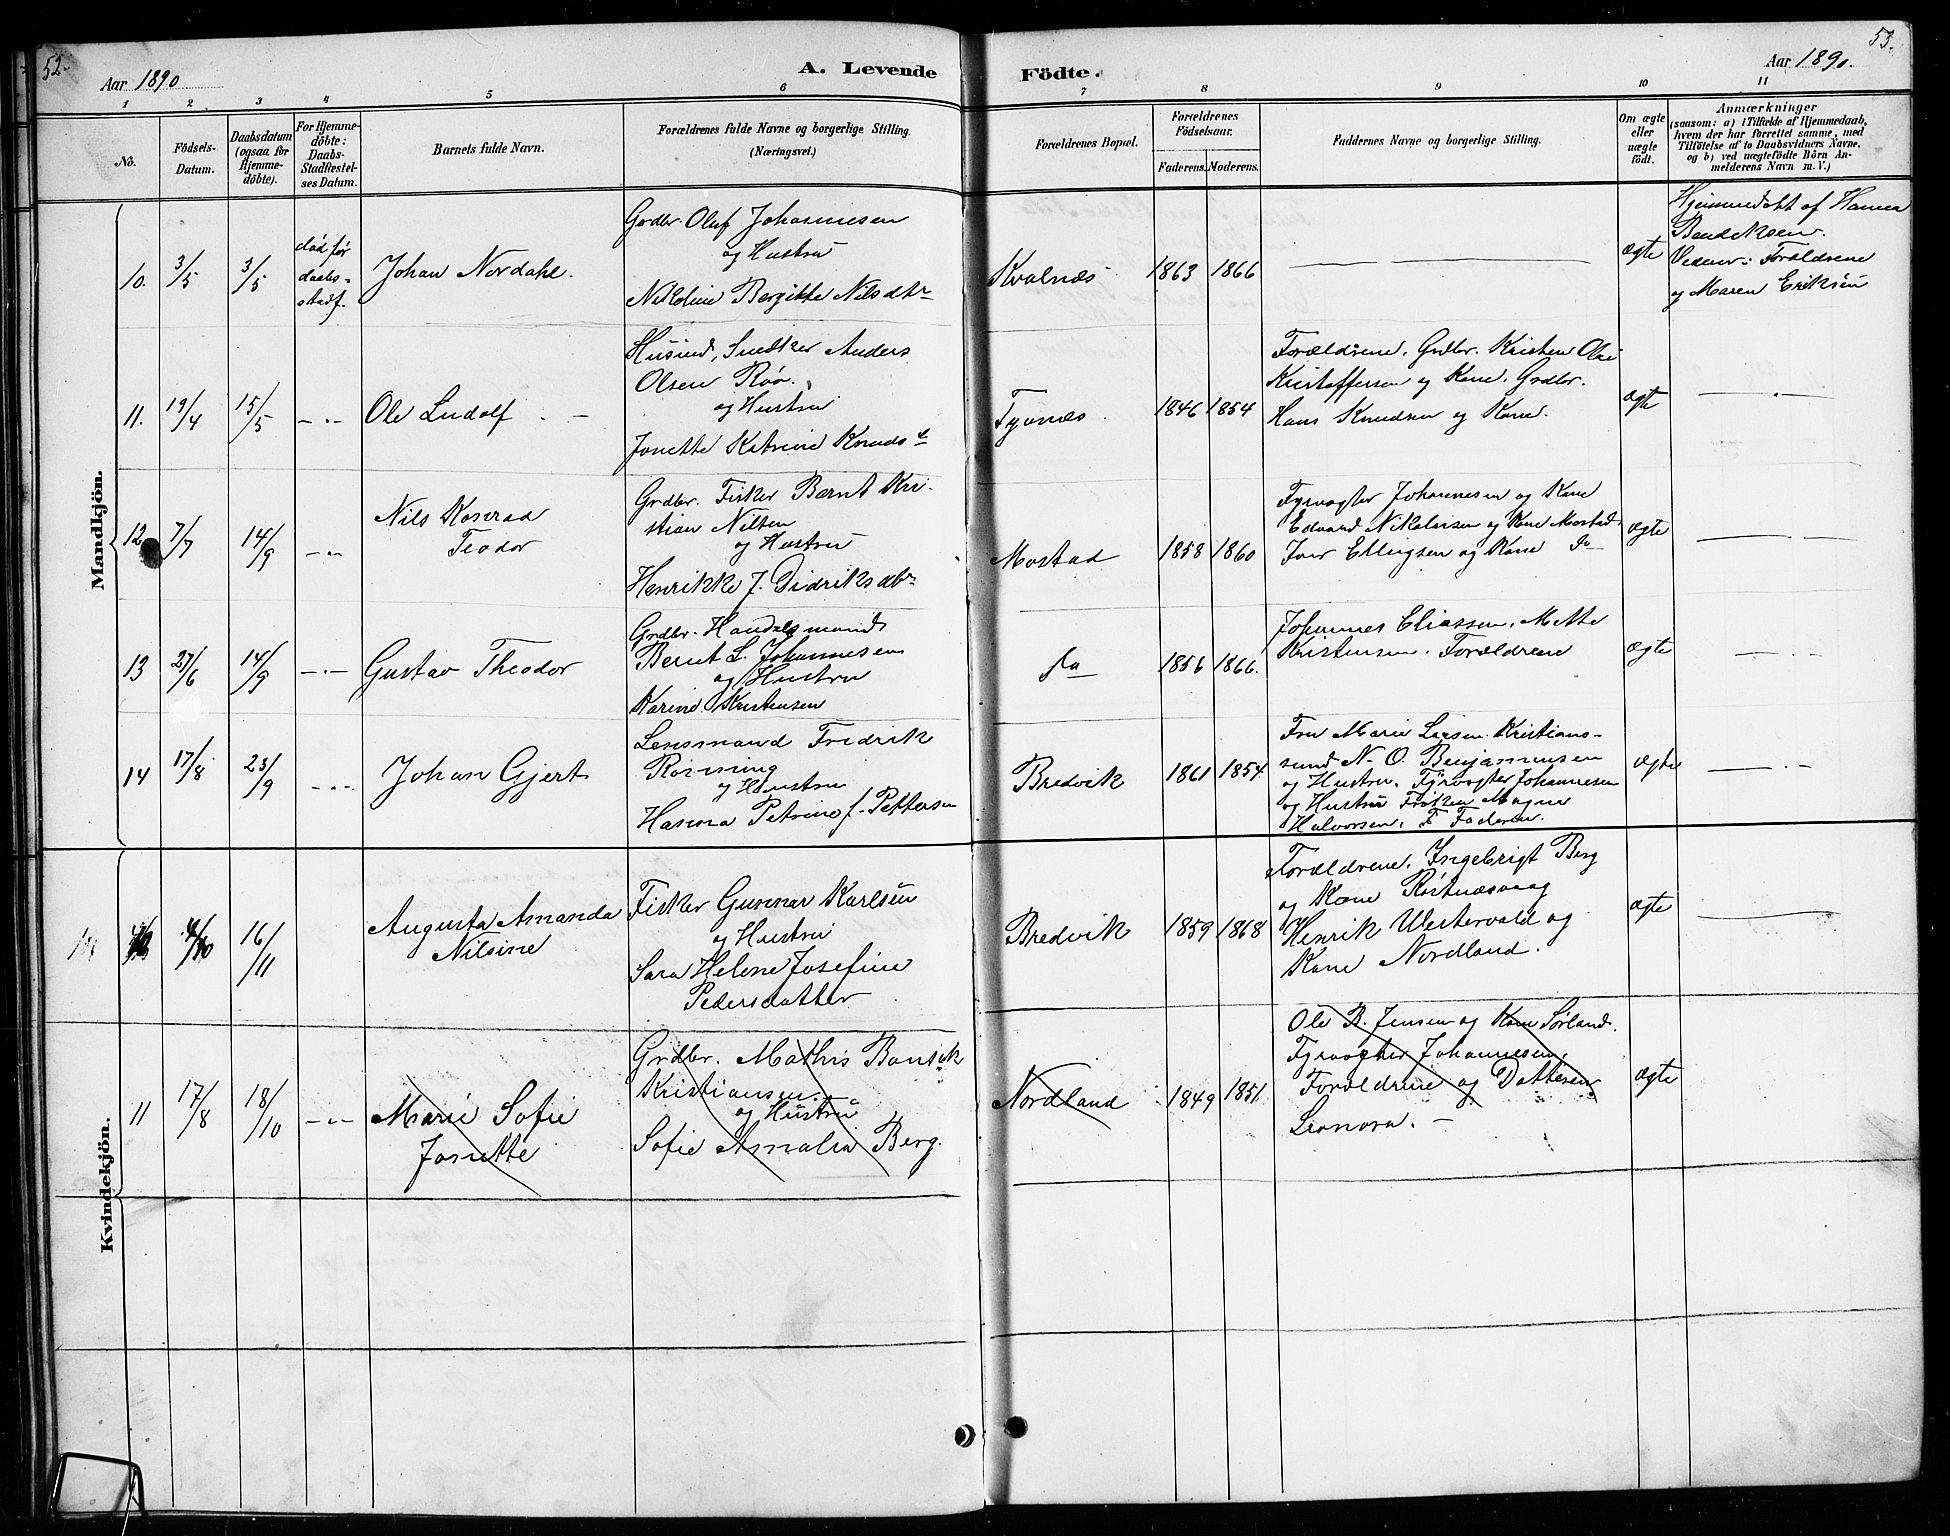 52.
53.
Aar 1890
A. Levende Födte.
Aar 1890.
1 2 3 4 5 6 7 8 9 10 11
No.
Födsels-
Datum.
Daabsdatum
(ogsaa for
Hjemme-
döbte).
For Hjemme-
döbte:
Daabs-
Stadfæstel-
ses Datum.
Barnets fulde Navn.
Forældrenes fulde Navne og borgerlige Stilling.
(Næringsvei.)
Forældrenes Bopæl.
Forældrenes
Födselsaar.
Faderens. Moderens.
Faddernes Navne og borgerlige Stilling.
Om ægte
eller
uægte
födt.
Anmærkninger
(saasom: a) i Tilfælde af Hjemmedaab,
hvem der har forrettet samme, med
Tilföielse af to Daabsvidners Navne,
og b) ved uægtefödte Börn An-
melderens Navn m.V.)
Mandkjön.
10. 3/5 3/5
død før
daabs-
stadf.
Johan Nordahl.
Grdbr. Oluf Johannesen
og Hustru
Nikoline Bergitte Nilsdtr
Kvalnæs 1863 1866
ægte
Hjemmedøbt af Hanna
Bendiksen.
Vidner: Forældrene
og Maren Eriksen
11. 19/4 15/5 - " -
Ole Ludolf
Husmd, Snedker Anders
Olsen Røø.
og Hustru
Jonette Katrine Knuds
Tyvnæs 1846 1854
Forældrene. Grdbr. Kristen Olai
Kristoffersen og Kone. Grdbr.
Hans Knudsen og Kone.
ægte
12 7/7 14/9 - " -
Nils Konrad
Teodor
Grdbr. Fisker Bernt Kri-
stian Nilsen
og Hustru
Henrikke J. Didriksdtr
Mostad 1858 1860
Fyrvogter Johannesen og Kone
Edvard Nikolaisen og Kone Mostad
Iver Ellingsen og Kone Do
ægte
13 27/6 14/9 - " -
Gustav Theodor
Grdbr. Handelsmand
Bernt L. Johannesen
og Hustru
Karine Kristensen
Do 1856 1866.
Johannes Eliassen. Mette
Kristensen. Forældrene
ægte
14 17/8 23/9 - " -
Johan Gjert
Lensmand Fredrik
Rønning
og Hustru
Hanna Petrine f. Pettersen
Bredvik 1861 1854
Fru Marie Larsen Kristians-
sund N. O. Benjaminsen
og Hustru. Fyrvogter Johannesen
og Hustru Frøken Magna
Halvorsen. F Faderen.
ægte
Kvindekjön.
16/11
Augusta Amanda
Nilsine
Fisker Gunnar Karlsen
og Hustru
Sara Helene Josefine
Pedersdatter
Bredvik 1859 1868
Forældrene. Ingebrigt Berg
og Kone Røstnæsvaag
Henrik Westervold og
Kone Nordland.
ægte
11 17/8 18/10 - " -
Marie Sofie
Jonette
Grdbr. Mathis Bonsak
Kristiansen
og Hustru
Sofie Amalia Berg.
Nordland 1849 1851
Ole B. Jensen og Kone Sørland.
Fyrvogter Johannesen.
Forældrene og Datteren
Leonora. -
ægte